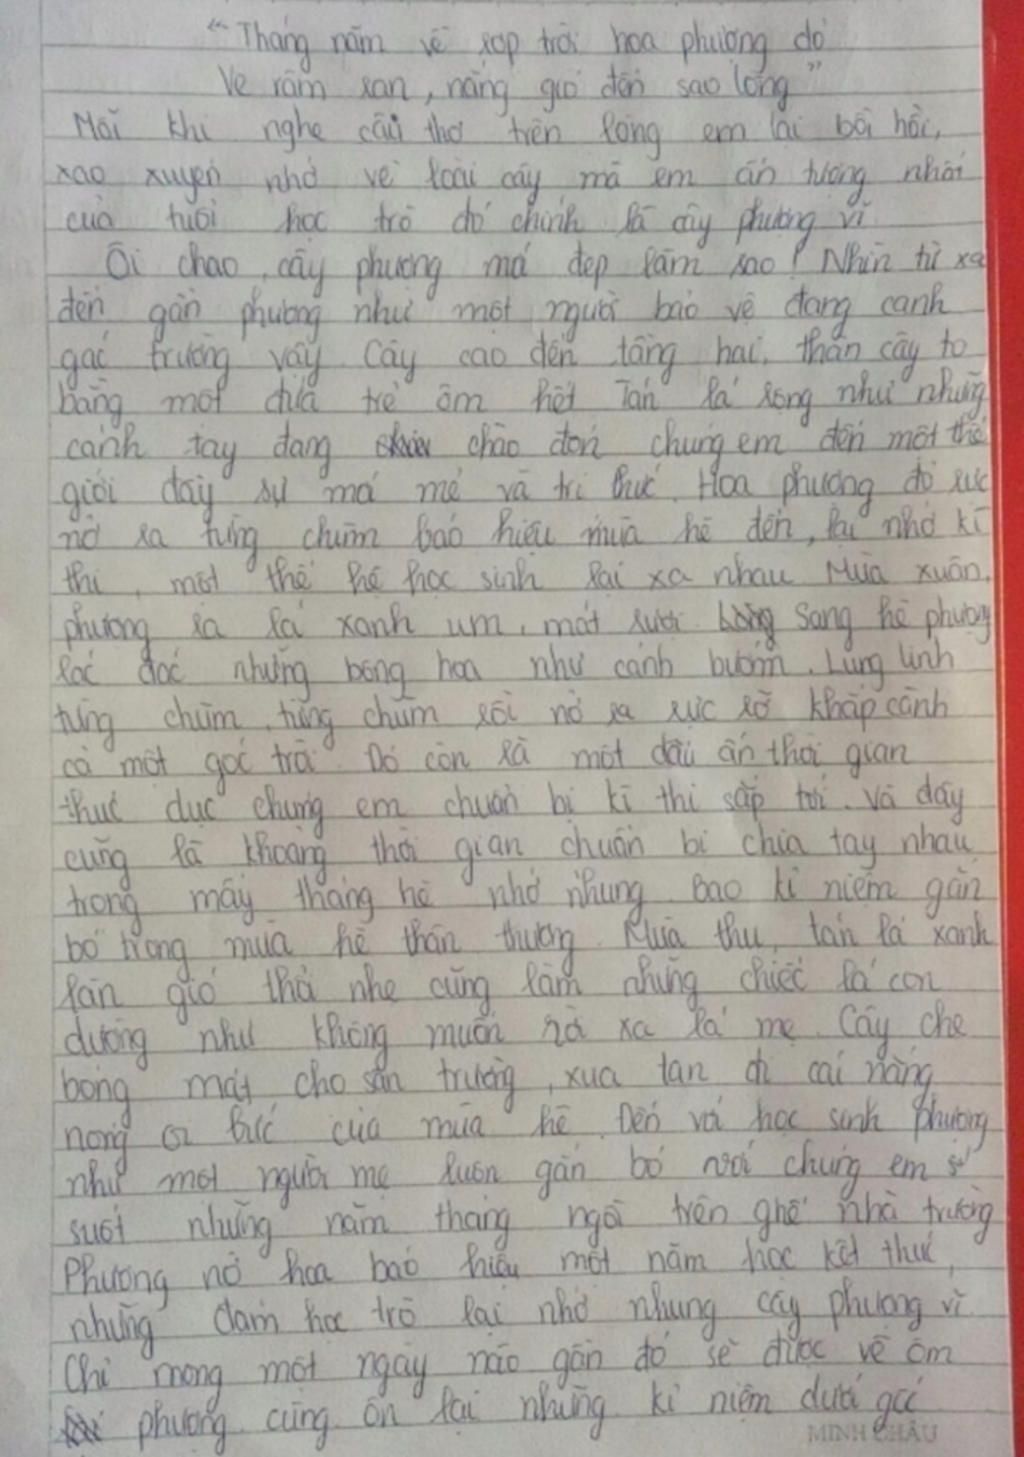 "Tháng năm về rợp trời hoa phượng đỏ
Ve râm ran, nắng gió đến sao lòng"
Mỗi khi nghe câu thơ trên lòng em lại bồi hồi,
xao xuyến nhớ về loài cây mà em ấn tượng nhất
của tuổi học trò đó chính là cây phượng vĩ
Ôi chao, cây phượng mới đẹp làm sao! Nhìn từ xa
đến gần phượng như một người bảo vệ đang canh
gác trường vậy. Cây cao đến tầng hai, thân cây to
bằng một đứa trẻ ôm hết. Tán lá rộng như những
cánh tay đang chào đón chúng em đến một thế
giới đầy sự mới mẻ và tri thức. Hoa phượng đỏ rực
nở ra từng chùm báo hiệu mùa hè đến, lại nhớ kì
thi, một thế hệ học sinh lại xa nhau. Mùa xuân,
phượng ra lá xanh um, mát rượi. Sang hè phượng
lác đác những bông hoa như cánh bướm. Lung linh
từng chùm, từng chùm rồi nở ra rực rỡ khắp cành
cả một góc trời. Đó còn là một dấu ấn thời gian
thúc dục chúng em chuẩn bị kì thi sắp tới. Và đây
cũng là khoảng thời gian chuẩn bị chia tay nhau
trong mấy tháng hè nhớ nhung bao kỉ niệm gắn
bó trong mùa hè thân thương. Mùa thu, tán lá xanh
làn gió thổi nhẹ cũng làm những chiếc lá con
dường như không muốn rời xa lá mẹ. Cây che
bóng mát cho sân trường, xua tan đi cái nắng
nóng bức của mùa hè. Đến với học sinh phượng
như một người mẹ luôn gắn bó với chúng em
suốt những năm tháng ngồi trên ghế nhà trường
Phượng nở hoa báo hiệu một năm học kết thúc,
những đám học trò lại nhớ nhung cây phượng vĩ.
Chỉ mong một ngày nào gần đó sẽ được về ôm
phượng cùng ôn lại những kỉ niệm dưới gốc
MINH CHÂU